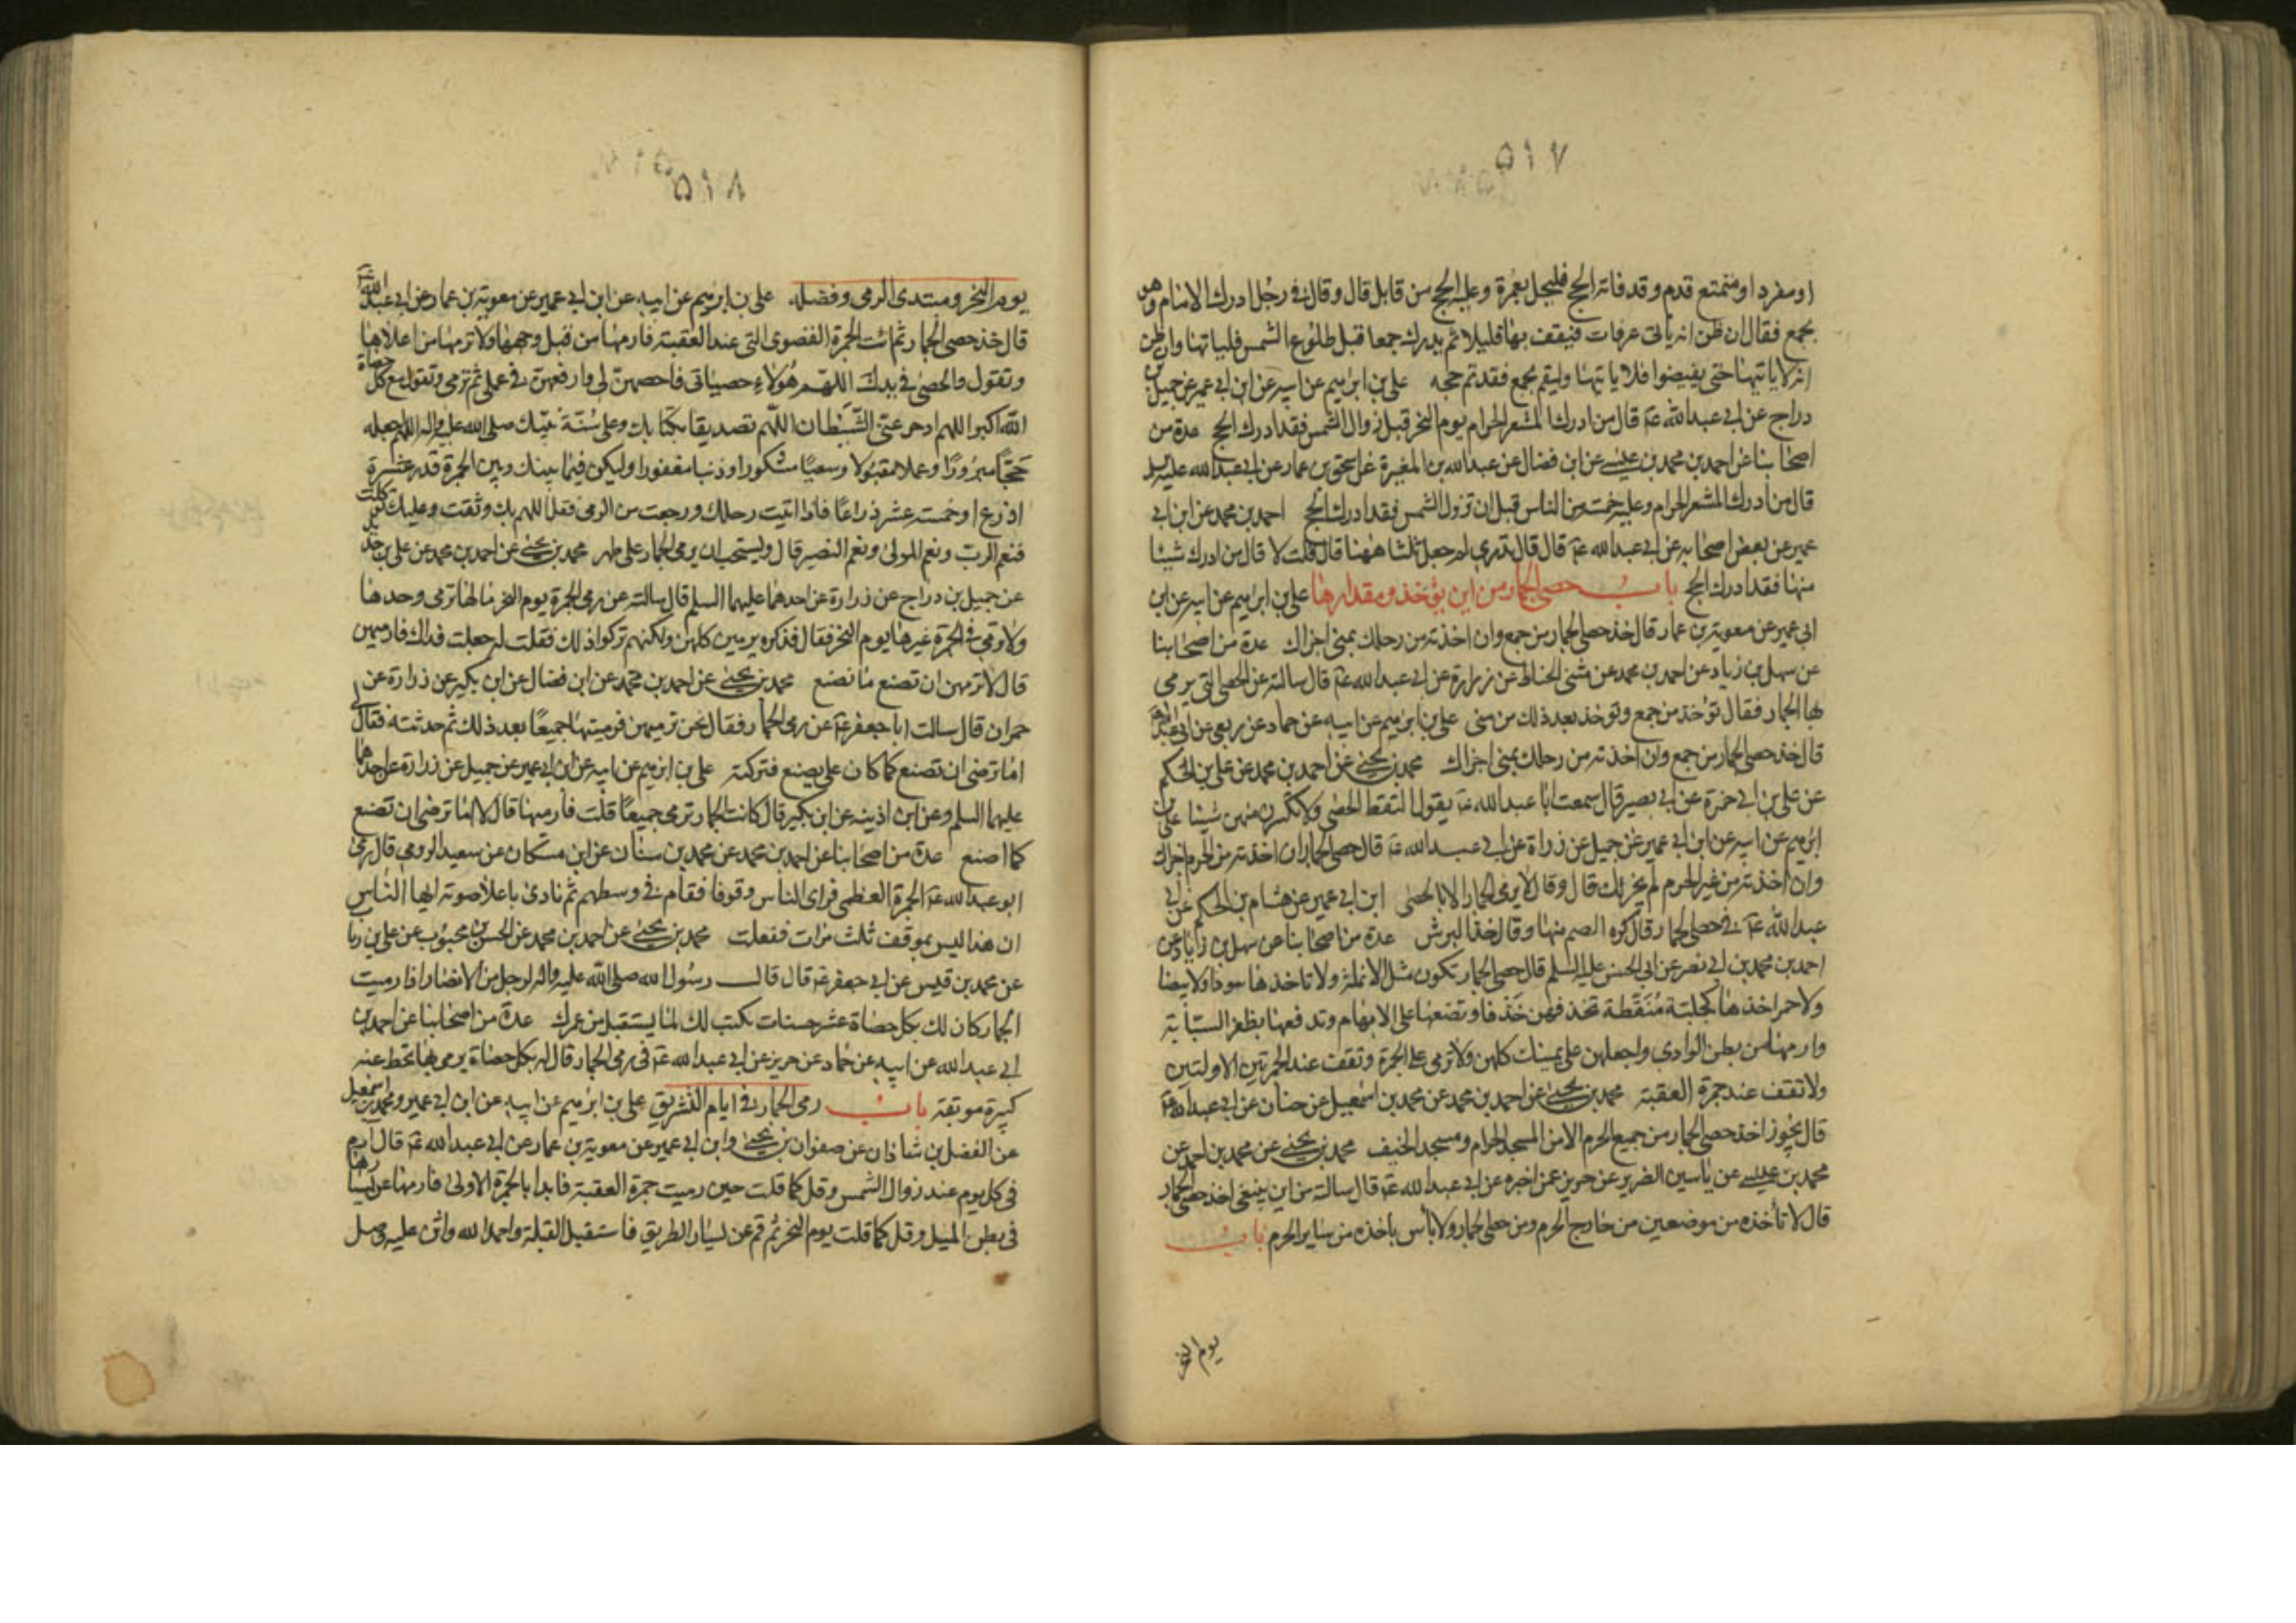 ٥١٧
او مفرد او متمتع قدم و قد فاته الحج فليحل بعمرة وعليه الحج من قابل قال وقال في رجل ادرك الامام وهو
بجمع فقال ان ظن انه ياتى عرفات فيقف بها قليلا ثم يدرك جمعا قبل طلوع الشمس فلياتها وان ظن
انه لا ياتيها حتى يفيضوا فلا ياتها وليقم بجمع فقد تم حجه على بن ابرهيم عن ابيه عن ابن ابي عمير عن جميل بن
دراج عن ابي عبد الله عم قال من ادرك المشعر الحرام يوم النحر قبل زوال الشمس فقد ادرك الحج عدة من
اصحابنا عن احمد بن محمد بن عيسى عن ابن فضال عن عبد الله بن المغيرة عن اسحق بن عمار عن ابي عبد الله عليه السلم
قال من ادرك المشعر الحرام وعليه خمسة من الناس قبل ان تزول الشمس فقد ادرك الحج احمد بن محمد عن ابن ابي
عمير عن بعض اصحابه عن ابي عبد الله عم قال قال تدرى لم جعل ثلثا ههنا قال قلت لا قال من ادرك شيئا
منها فقد ادرك الحج باب حصى الجمار من اين يؤخذ ومقدارها على بن ابرهيم عن ابيه عن ابن
ابى عمير عن معوية بن عمار قال خذ حصى الجمار من جمع وان اخذته من رحلك بمنى اجزاك عدة من اصحابنا
عن سهل بن زياد عن احمد بن محمد عن مثنى الحناط عن زرارة عن ابي عبد الله عم قال سالته عن الحصى التى يرمى
بها الجمار فقال تؤخذ من جمع وتوخذ بعد ذلك من منى على بن ابرهيم عن ابيه عن حماد عن ربعى عن ابي عبد الله
قال خذ حصى الجمار من جمع وان اخذته من رحلك بمنى اجزاك محمد بن يحيى عن احمد بن محمد عن على بن الحكم
عن على بن ابي حمزة عن ابي بصير قال سمعت ابا عبد الله عم يقول التقط الحصى ولا تكسرن منهن شيئا على بن
ابرهيم عن ابيه عن ابن ابي عمير عن جميل عن زرارة عن ابي عبد الله عم قال حصى الجمار ان اخذته من الحرم اجزاك
وان اخذته من غير الحرم لم يجزئك قال وقال لا يرمى الجمار الا بالحصى ابن ابي عمير عن هشام بن الحكم عن ابي
عبد الله عم في حصى الجمار قال كره الصم منها وقال خذ البرش عدة من اصحابنا عن سهل بن زياد عن
احمد بن محمد بن ابي نصر عن ابي الحسن عليه السلم قال حصى الجمار تكون مثل الانملة ولا تاخذها سودا ولا بيضا
ولا حمرا خذها كحلية منقطة تخذفهن خذفا وتضعها على الابهام وتدفعها بظفر السبابة
وارمها من بطن الوادى واجعلهن على يمينك كلهن ولا ترمى على الجمرة وتقف عند الجمرتين الاولتين
ولا تقف عند جمرة العقبة محمد بن يحيى عن احمد بن محمد عن محمد بن اسمعيل عن حنان عن ابي عبد الله عم
قال يجوز اخذ حصى الجمار من جميع الحرم الا من المسجد الحرام ومسجد الخيف محمد بن يحيى عن محمد بن احمد عن
محمد بن عيسى عن ياسين الضرير عن حريز عمن اخبره عن ابي عبد الله عم قال سالته من اين ينبغى اخذ حصى الجمار
قال لا تأخذه من موضعين من خارج الحرم ومن حصى الجمار ولا بأس باخذه من ساير الحرم باب
يوم النحر
٥١٨
يوم النحر ومبتدى الرمى وفضله على بن ابرهيم عن ابيه عن ابن ابي عمير عن معوية بن عمار عن ابي عبد الله عم
قال خذ حصى الجمار ثم ائت الجمرة القصوى التى عند العقبة فارمها من قبل وجهها ولا ترمها من اعلاها
وتقول والحصى في يدك اللهم هؤلاء حصياتى فاحصهن لى وارفعهن في عملى ثم ترمى وتقول مع كل حصاة
الله اكبر اللهم ادحر عنى الشيطان اللهم تصديقا بكتابك وعلى سنة نبيك صلى الله عليه واله اللهم اجعله
حجا مبرورا وعملا مقبولا وسعيا مشكورا وذنبا مغفورا وليكن فيما بينك وبين الجمرة قدر عشرة
اذرع او خمسة عشر ذراعا فاذا اتيت رحلك ورجعت من الرمى فقل اللهم بك وثقت وعليك توكلت
فنعم الرب ونعم المولى ونعم النصير قال ويستحب ان يرمى الجمار على طهر محمد بن يحيى عن احمد بن محمد عن على بن حديد
عن جميل بن دراج عن زرارة عن احدهما عليهما السلم قال سالته عن رمى الجمرة يوم النحر مالها ترمى وحدها
ولا ترمى في الجمرة غيرها يوم النحر فقال قد كن يرمين كلهن ولكنهم تركوا ذلك فقلت له جعلت فداك فارميهن
قال لا ترمهن ان تصنع ما نصنع محمد بن يحيى عن احمد بن محمد عن ابن فضال عن ابن بكير عن زرارة عن
حمران قال سالت ابا جعفر عم عن رمى الجمار فقال كن ترمين فرميتها جميعا بعد ذلك ثم حدثته فقال لى
اما ترضى ان تصنع كما كان على يصنع فتركته على بن ابرهيم عن ابيه عن ابن ابي عمير عن جميل عن زرارة عن احدهما
عليهما السلم وعن ابن اذينه عن ابن بكير قال كانت الجمار ترمى جميعا قلت فارمها قال لا اما ترضى ان تصنع
كما اصنع عدة من اصحابنا عن احمد بن محمد عن محمد بن سنان عن ابن مسكان عن سعيد الرومى قال رمى
ابو عبد الله عم الجمرة العظمى فراى الناس وقوفا فقام في وسطهم ثم نادى باعلا صوته ايها الناس
ان هذا ليس بموقف ثلث مرات ففعلت محمد بن يحيى عن احمد بن محمد عن الحسن بن محبوب عن على بن رئا
عن محمد بن قيس عن ابي جعفر عم قال قال رسول الله صلى الله عليه واله لرجل من الانصار اذا رميت
الجمار كان لك بكل حصاة عشر حسنات تكتب لك لما يستقبل من عمرك عدة من اصحابنا عن احمد بن
ابي عبد الله عن ابيه عن حماد عن حريز عن ابي عبد الله عم في رمى الجمار قال له بكل حصاة يرمى بها تحط عنه
كبيرة موبقة باب رمى الجمار في ايام التشريق على بن ابرهيم عن ابيه عن ابن ابي عمير ومحمد بن اسمعيل
عن الفضل بن شاذان عن صفوان بن يحيى وابن ابي عمير عن معوية بن عمار عن ابي عبد الله عم قال ارم
في كل يوم عند زوال الشمس وقل كما قلت حين رميت جمرة العقبة فابدا بالجمرة الاولى فارمها عن يسارها
في بطن المسيل وقل كما قلت يوم النحر ثم قم عن يسار الطريق فاستقبل القبلة واحمد الله واثن عليه وصل